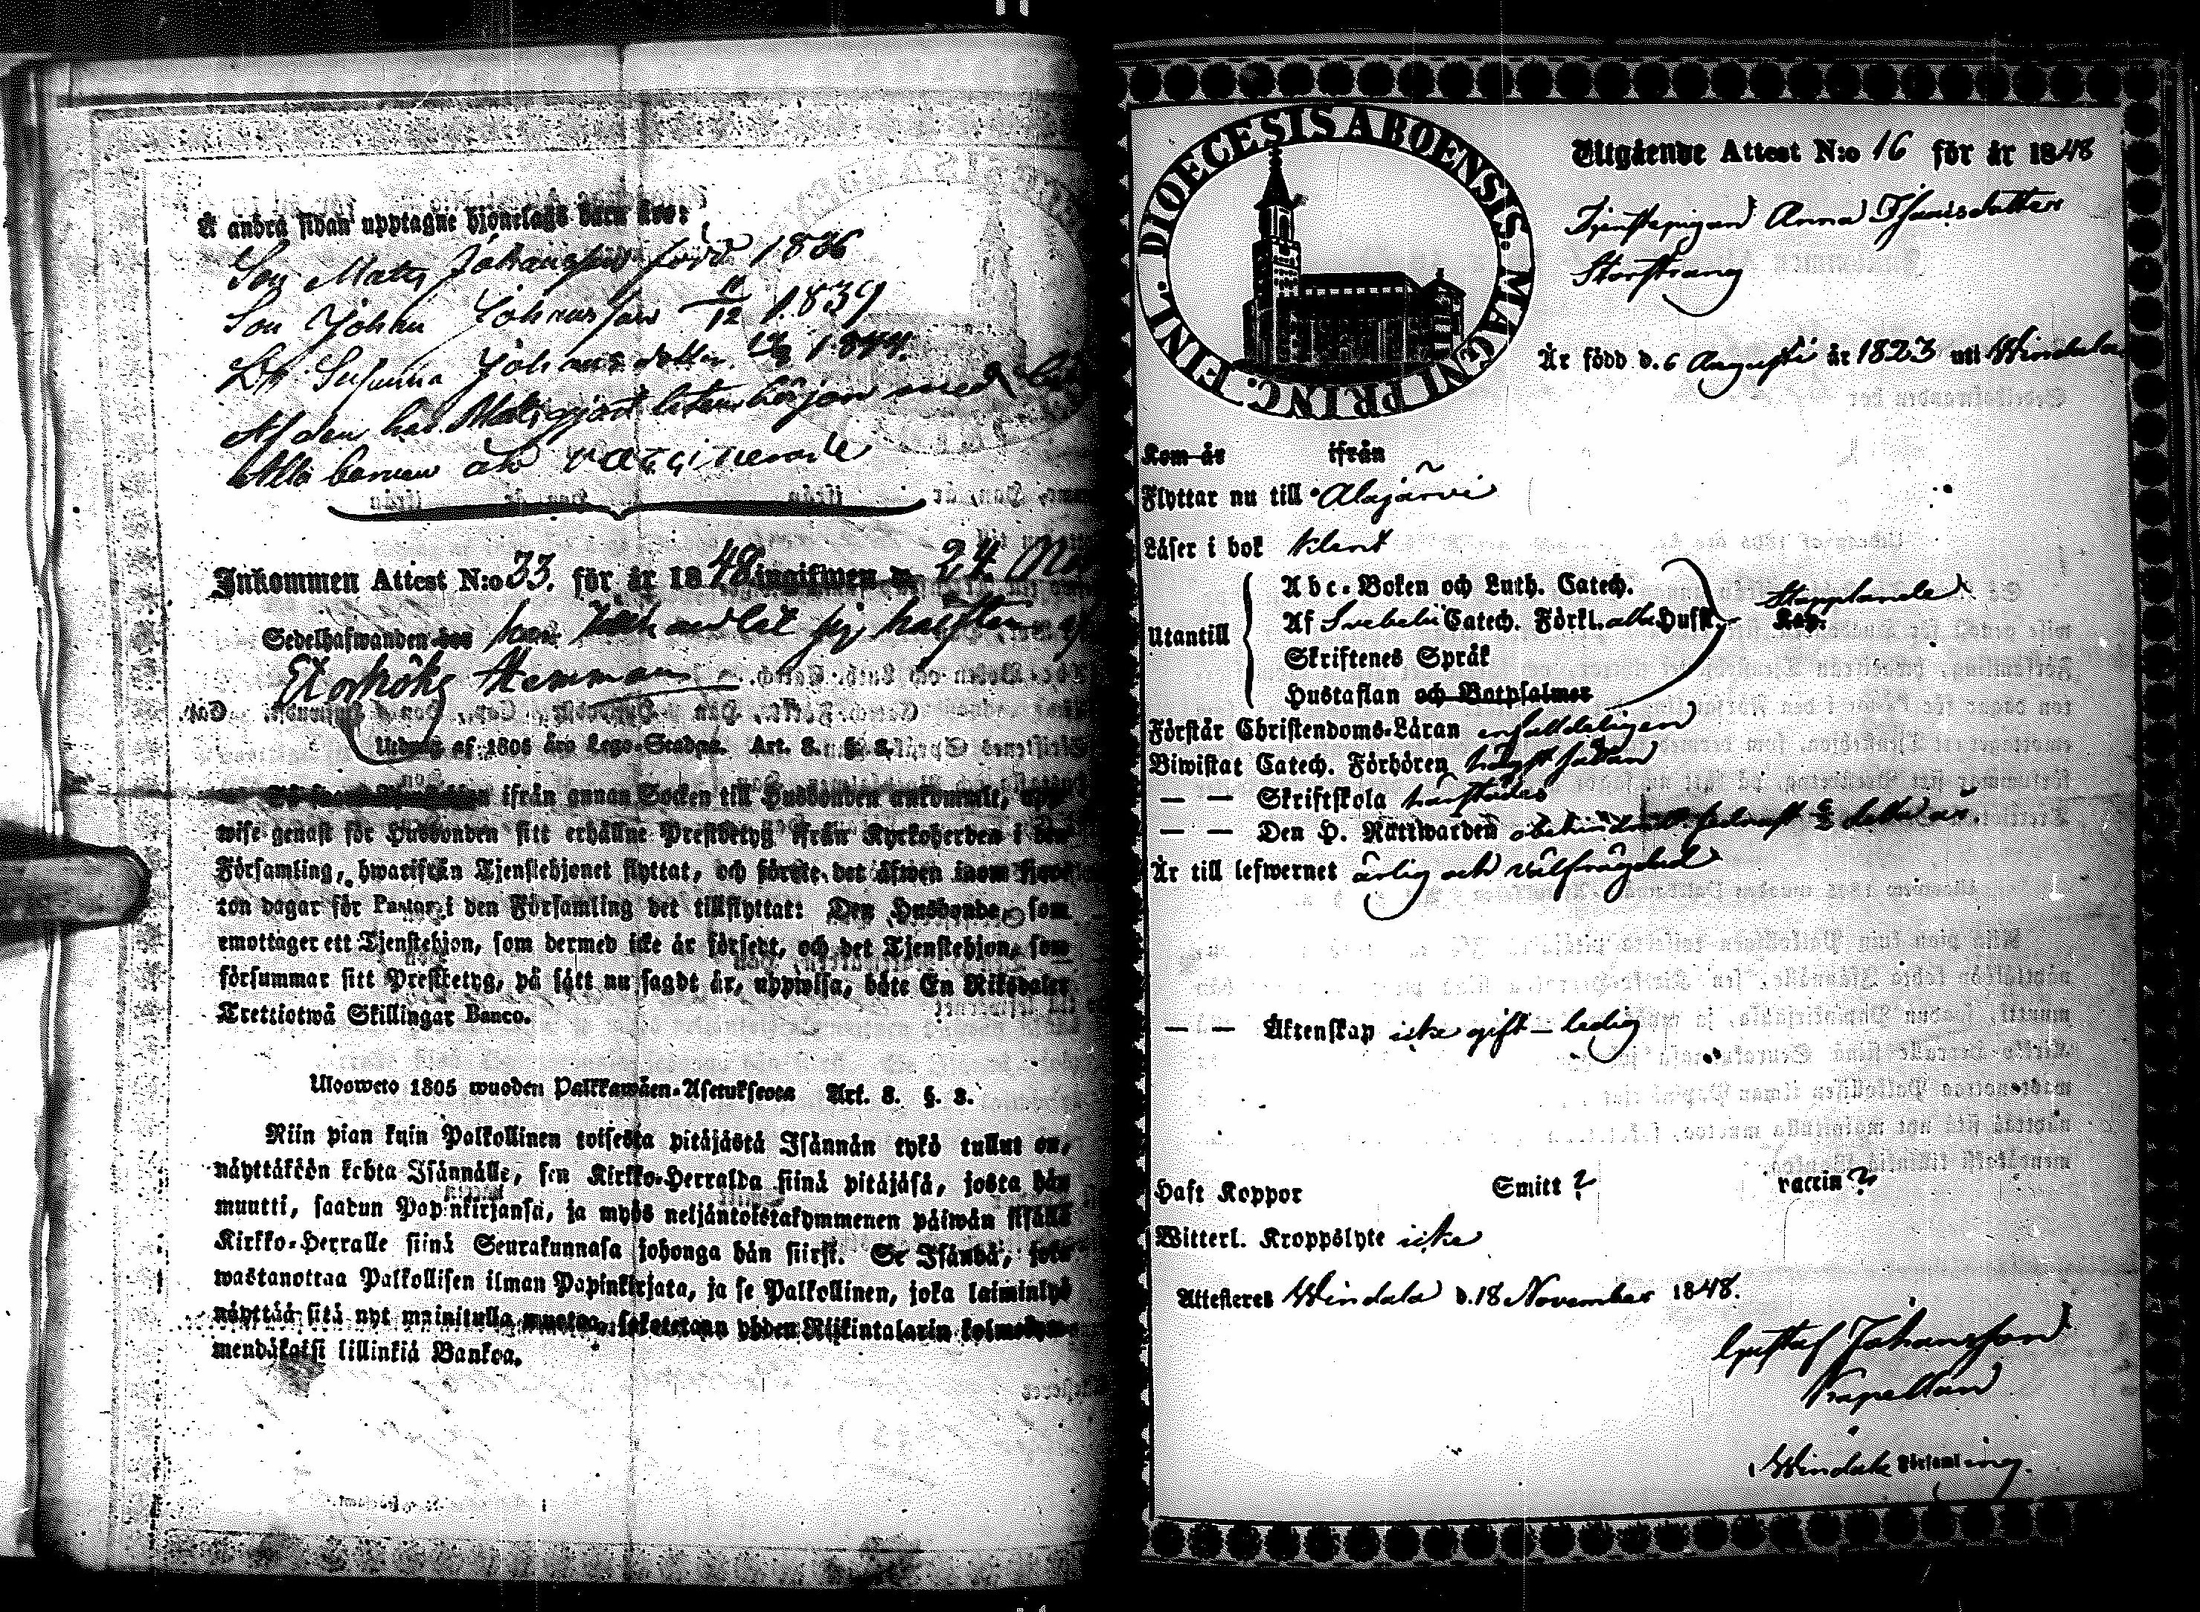 Å andra sidan upptagne hjonelags barn äro:
Son Mats Johansson född 1836
Son Johan Johansson 11/12 1839
Dr Susanna Johansdotter 1844.
Af dem har Mats gjort liten början med
Alla barnen äro vaccinerade
Inkommen Attest N:o 33. för år 1848 ingifwen d. 24.
Sedelhafwanden hos han har sig hälften af
Hemman
Utdrag af 1805 års Lego-Stadga. Art. 8. §. 8.
ifrån annan Socken till Husbonden ankommit, upp-
wise genast för Husbonden sitt erhållne Prestbetyg ifrån Kyrkoherden i den
Församling, hwarifrån Tjenstehjonet flyttat, och förete det äfwen inom fjor-
ton dagar för Pastor i den Församling det tillflyttat: Den Husbonde, som
emottager ett Tjenstehjon, som dermed icke är försedt, och det Tjenstehjon, som
försummar sitt Prestbetyg, på sätt nu sagdt är, uppwisa, böte En Riksdaler
Trettiotwå Skillingar Banco.
Ulosweto 1805 wuoden Palkkawäen-Asetuksesta Art. 8. §. 8.
Niin pian kuin Palkollinen toisesta pitäjästä Isännän tykö tullut on,
näyttäköön kohta Isännälle, sen Kirkko-Herralda siinä pitäjäsä, josta hän
muutti, saadun Papinkirjansa, ja myös neljäntoistakymmenen päiwän sisällä
Kirkko-Herralle siinä Seurakunnasa johonga hän siirsi. Se Isändä, joka
wastanottaa Palkollisen ilman Papinkirjata, ja se Palkollinen, joka laiminlyö
näyttää sitä nyt mainitulla muotoa, sakotetaan yhden Riikintalarin kolmekym-
mendäkaksi killinkiä Bankoa.
DIOECESIS ABOENSIS. MAGNI PRINC. FINL.
Utgående Attest N:o 16 för år 1848
Tjenstepigan Anna Thomsdotter
Storstrang
Är född d. 6 Augusti år 1823 uti Windala
Kom år ifrån
Flyttar nu till Alajärvi
Läser i bok klent
Abc-Boken och Luth. Catech.
Utantill Af Svebelii Catech. Förkl. alla Hufst. Stapplande Kap.
Skriftenes Språk
Hustaflan och Botpsalmer
Förstår Christendoms-Läran enfaldeligen
Biwistat Catech. Förhören hvarje sådan
— — Skriftskola härstädes
— — Den H. Nattwarden obehindradt sednast detta år.
Är till lefwernet ärlig och välfrägdad
— — Äktenskap icke gift — ledig
Haft Koppor Smitt ? vaccin ?
Witterl. Kroppslyte icke
Attesteres Windala d. 18 November 1848.
Gustaf Johansson
Kapellan
i Windala Församling.